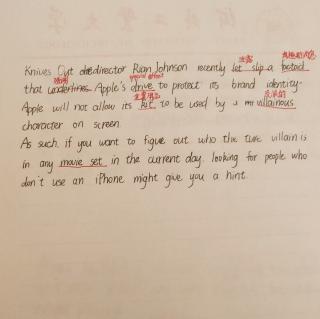 Knives Out director Rian Johnson recently let slip a factoid
that underlines Apple's drive to protect its brand identity.
Apple will not allow its kit to be used by a villainous
character on screen.
As such, if you want to figure out who the true villain is
in any movie set in the current day, looking for people who
don't use an iPhone might give you a hint.